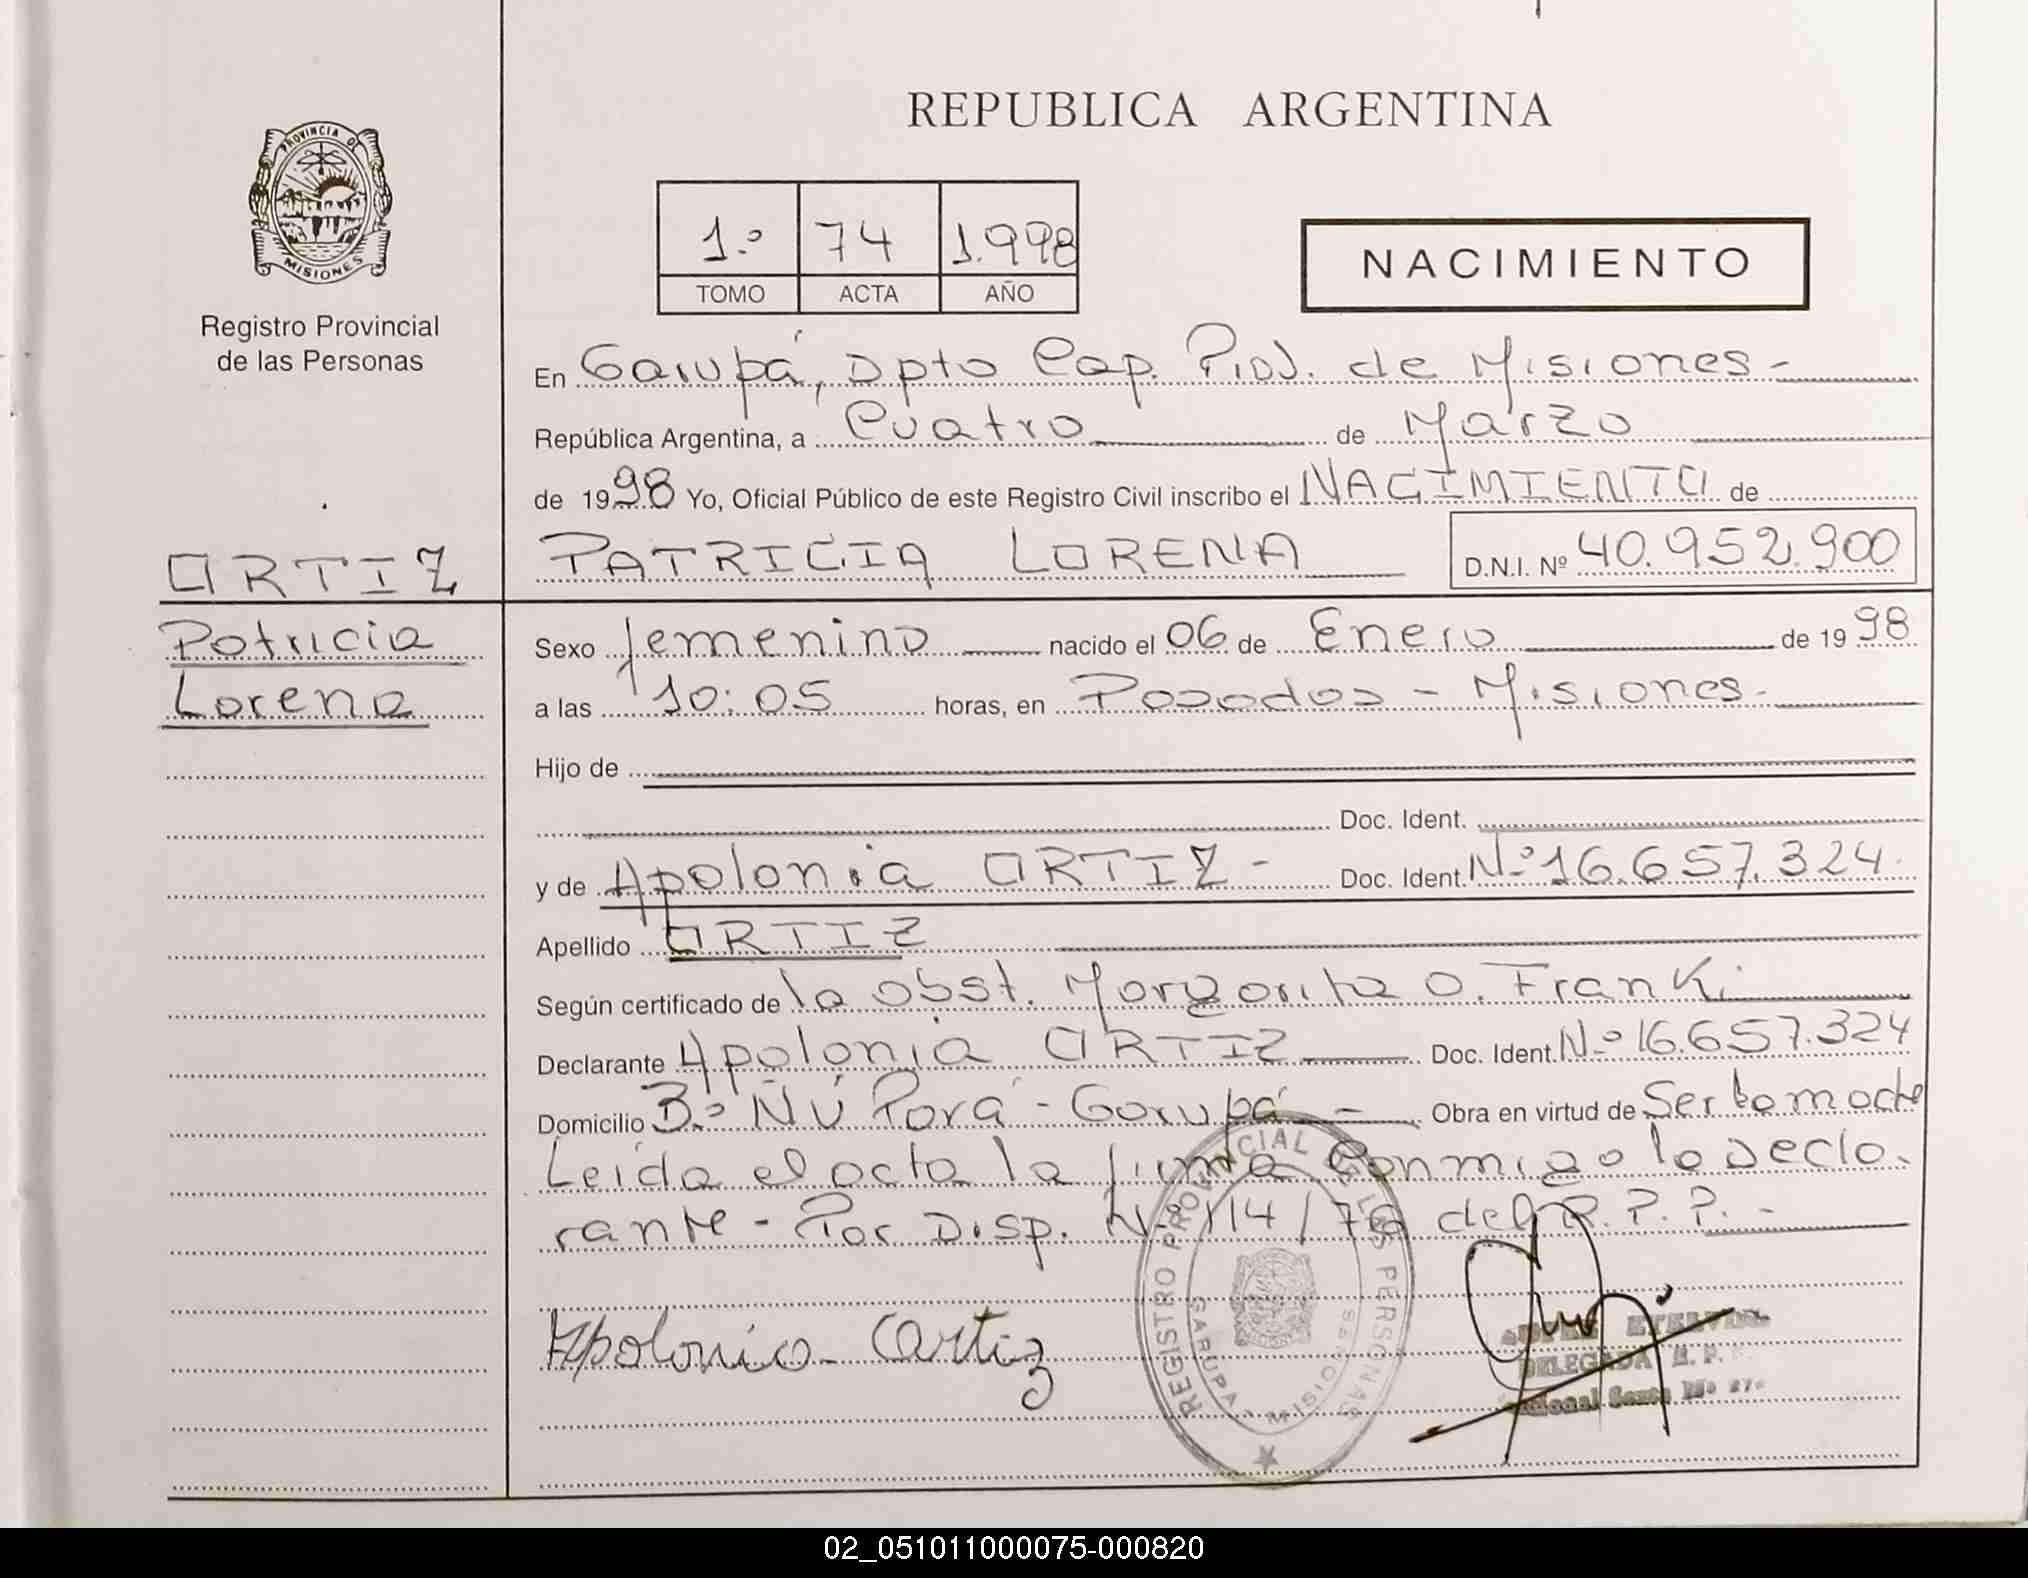 REPUBLICA ARGENTINA
PROVINCIA DE
MISIONES
Registro Provincial
de las Personas
1.º 74 1.998
TOMO ACTA AÑO
NACIMIENTO
En Garupá, Dpto Cap. Prov. de Misiones -
República Argentina, a Cuatro de Marzo
de 1998 Yo, Oficial Público de este Registro Civil inscribo el NACIMIENTO de
ORTIZ
PATRICIA LORENA D.N.I. Nº 40.952.900
Patricia
Lorena
Sexo femenino nacido el 06 de Enero de 1998
a las 10:05 horas, en Posadas - Misiones -
Hijo de
Doc. Ident.
y de Apolonia ORTIZ - Doc. Ident. Nº 16.657.324.
Apellido ORTIZ
Según certificado de la obst. Margarita O. Franki
Declarante Apolonia ORTIZ Doc. Ident. Nº 16.657.324
Domicilio Bº Ñú Porá - Garupá - Obra en virtud de Ser la madre
Leida el acta la firma conmigo la decla-
rante - Por Disp. Nº 114/76 del R.P.P. -
Apolonia Ortiz
REGISTRO PROVINCIAL DE LAS PERSONAS
GARUPA - MISIONES
DELEGADA R. P.
02_051011000075-000820